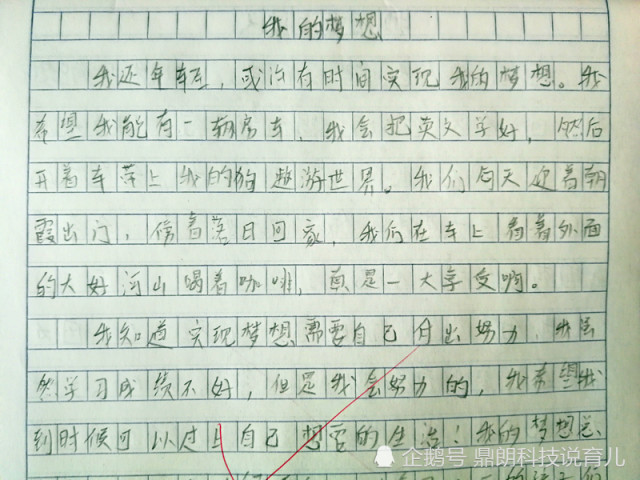 我的梦想
我还年轻，或许有时间实现我的梦想。我
希望我能有一辆房车，我会把英文学好，然后
开着车带上我的狗遨游世界。我们每天迎着朝
霞出门，傍着落日回家，我们在车上看着外面
的大好河山喝着咖啡，真是一大享受啊。
我知道实现梦想需要自己付出努力，我虽
然学习成绩不好，但是我会努力的，我希望我
到时候可以过上自己想要的生活！我的梦想总
企鹅号 鼎朗科技说育儿